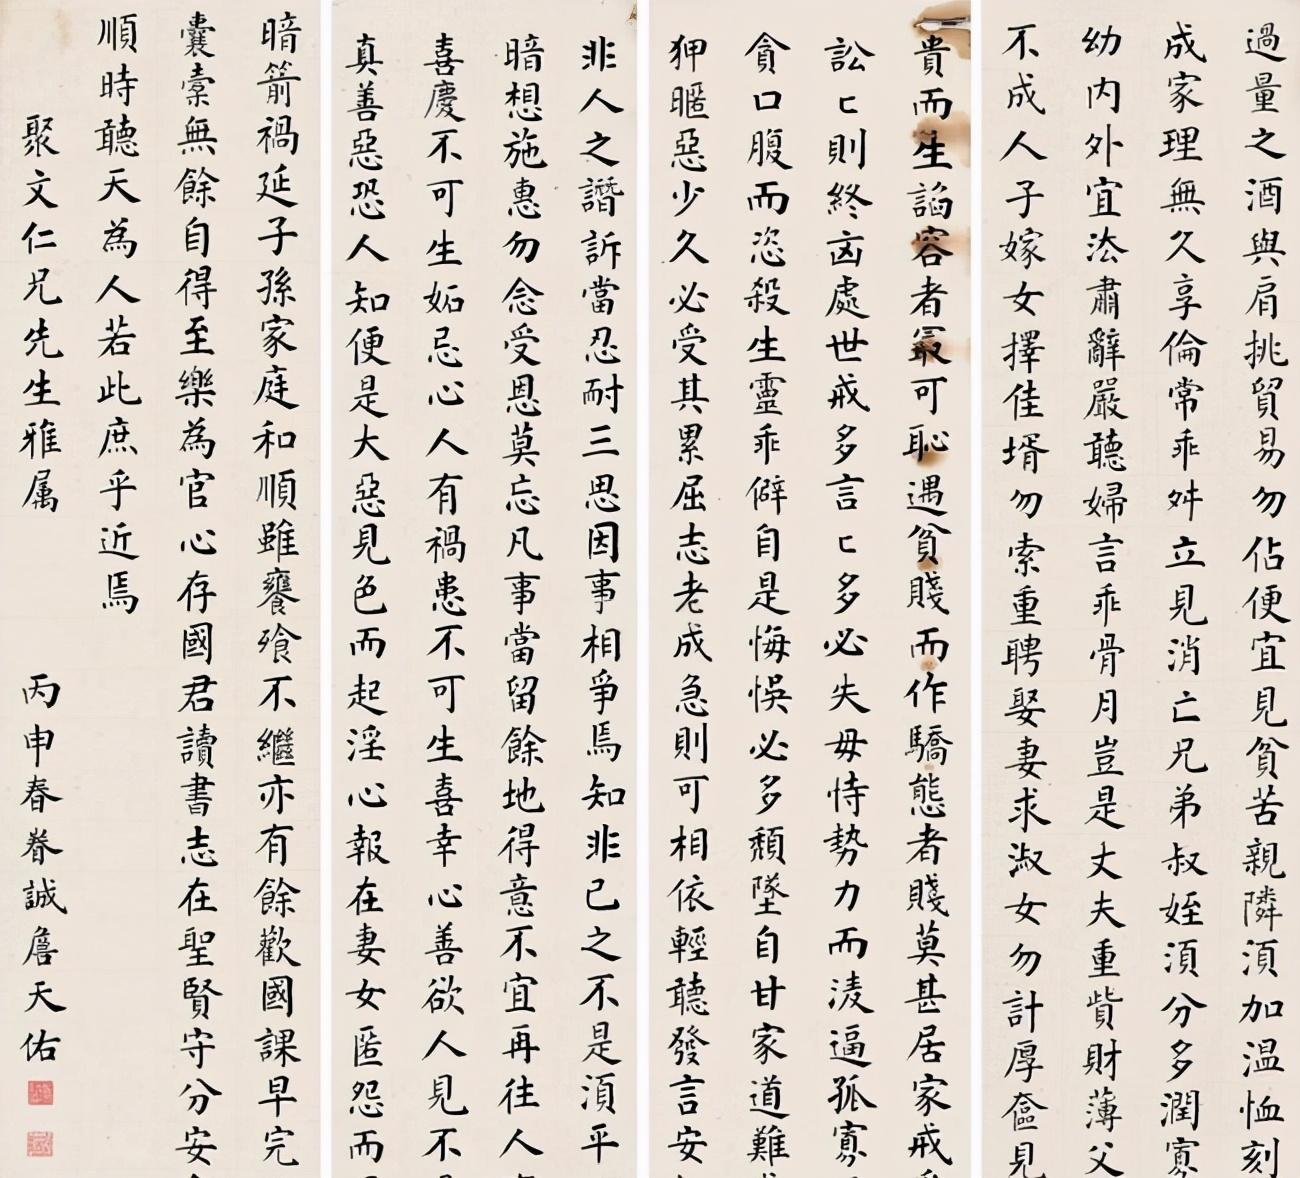 過量之酒與肩挑貿易勿佔便宜見貧苦親隣須加温恤刻
成家理無久享倫常乖舛立見消亡兄弟叔姪須分多潤寡
幼内外宜法肅辭嚴聽婦言乖骨月豈是丈夫重貲財薄父
不成人子嫁女擇佳壻勿索重聘娶妻求淑女勿計厚奩見
貴而生謟容者最可恥遇貧賤而作驕態者賤莫甚居家戒
訟匕則終凶處世戒多言匕多必失毋恃勢力而淩逼孤寡
貪口腹而恣殺生靈乖僻自是悔悞必多頹墜自甘家道難
狎暱惡少久必受其累屈志老成急則可相依輕聽發言安
非人之譖訴當忍耐三思因事相爭焉知非己之不是須平
暗想施惠勿念受恩莫忘凡事當留餘地得意不宜再往人
喜慶不可生妬忌心人有禍患不可生喜幸心善欲人見不
真善惡恐人知便是大惡見色而起淫心報在妻女匿怨而
暗箭禍延子孫家庭和順雖饔飧不繼亦有餘歡國課早完
囊橐無餘自得至樂為官心存國君讀書志在聖賢守分安
順時聽天為人若此庶乎近焉
聚文仁兄先生雅属
丙申春眷誠詹天佑